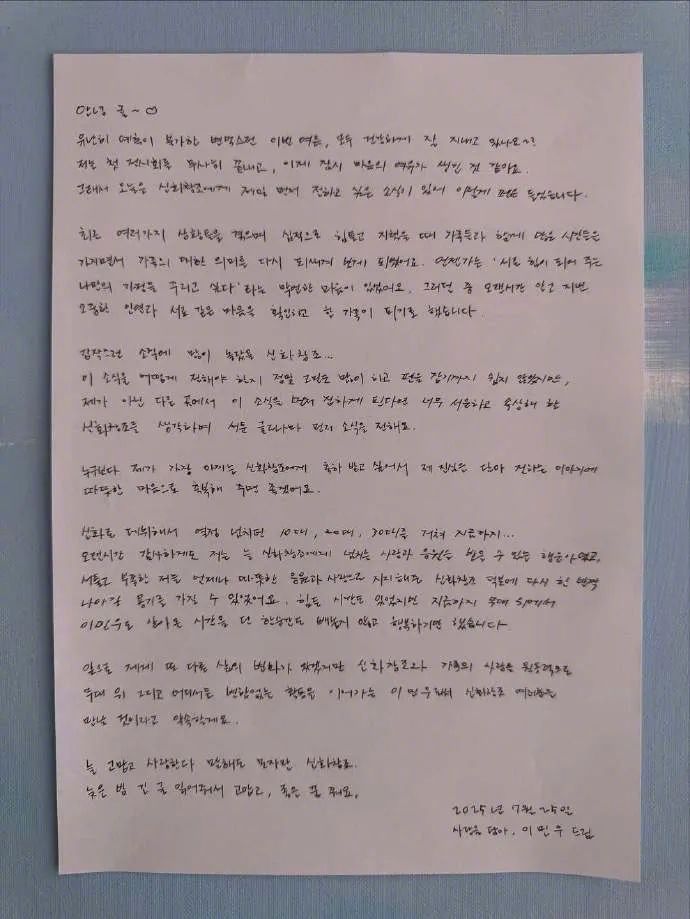 안녕 귤~♡
유난히 예측이 불가한 변덕스런 이번 여름, 모두 건강하게 잘 지내고 있나요~?
저는 첫 전시회를 무사히 끝내고, 이제 잠시 마음의 여유가 생긴 것 같아요.
그래서 오늘은 신화창조에게 제일 먼저 전하고 싶은 소식이 있어 이렇게 펜을 들었습니다.
최근 여러가지 상황들을 겪으며 심적으로 힘들고 지쳤을 때 가족들과 함께 많은 시간들을
가지면서 가족의 대한 의미를 다시 되새겨 보게 되었어요. 언젠가는 '서로 힘이 되어 주는
나만의 가정을 꾸리고 싶다'라는 막연한 마음이 있었어요. 그러던 중 오랜시간 알고 지낸
소중한 인연과 서로 같은 마음을 확인하고 한 가족이 되기로 했습니다.
갑작스런 소식에 많이 놀랐을 신화창조...
이 소식을 어떻게 전해야 하지 정말 고민도 많이 하고 펜을 잡기까지 쉽지 않았지만,
제가 아닌 다른 곳에서 이 소식을 먼저 접하게 된다면 너무 서운하고 속상해 할
신화창조를 생각하며 서툰 글로나마 먼저 소식을 전해요.
누구보다 제가 가장 아끼는 신화창조에게 축하 받고 싶어서 제 진심을 담아 전하는 이야기에
따뜻한 마음으로 축복해 주면 좋겠어요.
신화로 데뷔해서 열정 넘치던 10대, 20대, 30대를 거쳐 지금까지...
오랜시간 감사하게도 저는 늘 신화창조에게 넘치는 사랑과 응원을 받을 수 있는 행운아였고,
서툴고 부족한 저를 언제나 따뜻한 응원과 사랑으로 지지해주는 신화창조 덕분에 다시 한 번 더
나아갈 용기를 가질 수 있었어요. 힘든 시간도 있었지만 지금까지 무대 위에서
이민우로 살아온 시간을 단 한순간도 빼놓지 않고 행복하기만 했습니다.
앞으로 제게 또 다른 삶의 변화가 있겠지만 신화창조와 가족의 사랑을 원동력으로
무대 위 그리고 어디서든 변함없는 활동을 이어가는 이민우로써 신화창조 여러분을
만날 것이라고 약속할게요.
늘 고맙고 사랑한다 말해도 모자란 신화창조.
늦은 밤 긴 글 읽어줘서 고맙고, 좋은 꿈 꿔요.
2025년 7월 25일
사랑을 담아. 이민우 드림